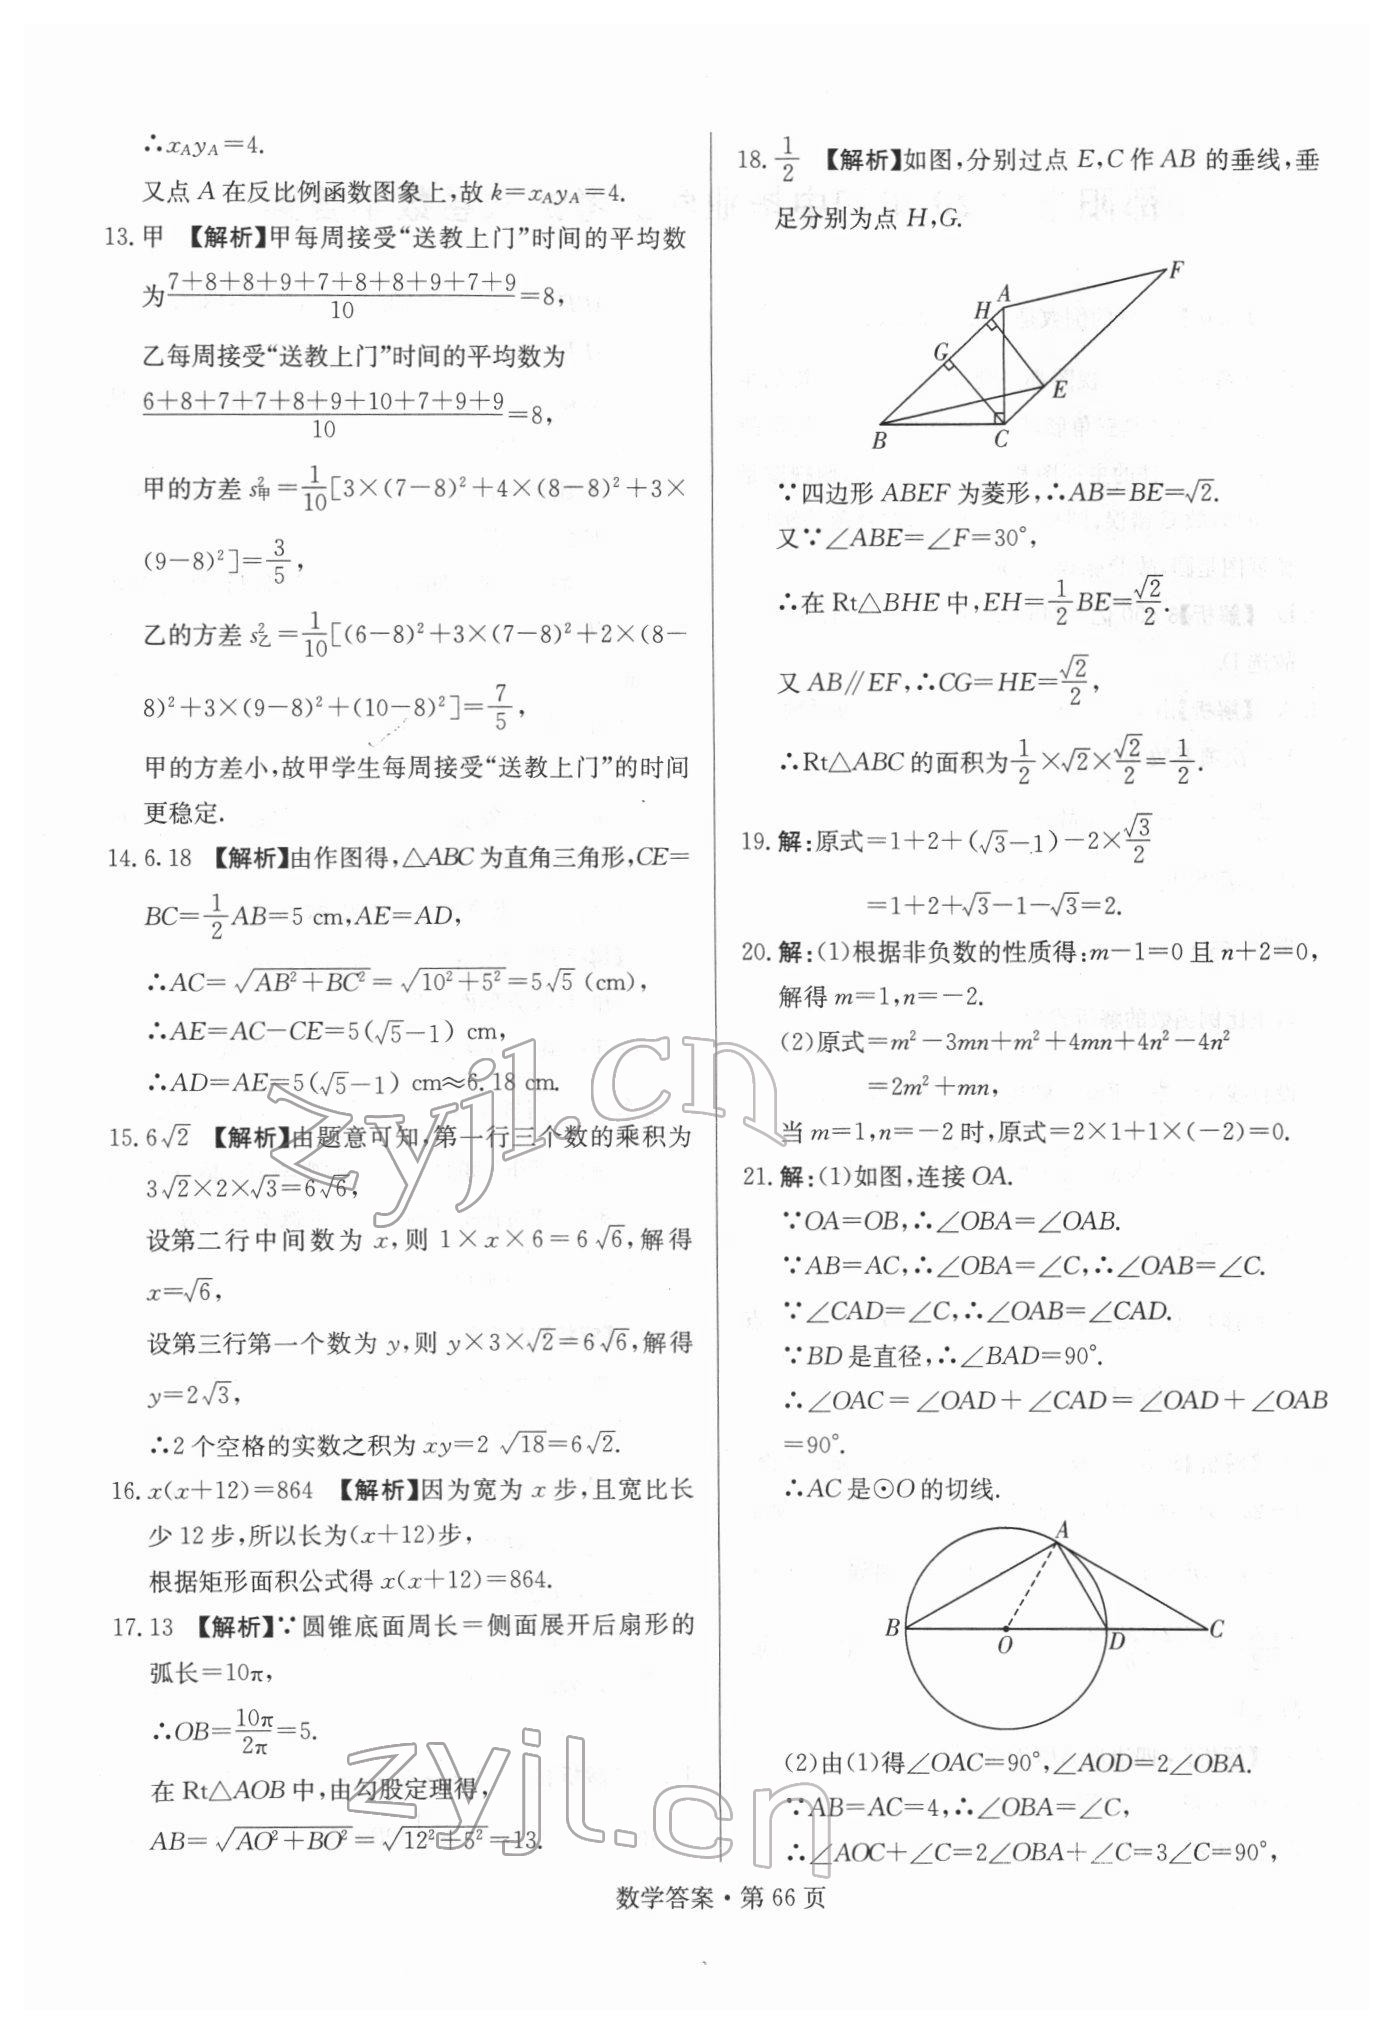 ∴x_A y_A=4.
又点 A 在反比例函数图象上,故 k=x_A y_A=4.
13. 甲 【解析】甲每周接受“送教上门”时间的平均数
为(7+8+8+9+7+8+8+9+7+9)/10=8,
乙每周接受“送教上门”时间的平均数为
(6+8+7+7+8+9+10+7+9+9)/10=8,
甲的方差 s²甲=1/10[3×(7-8)²+4×(8-8)²+3×
(9-8)²]=3/5,
乙的方差 s²乙=1/10[(6-8)²+3×(7-8)²+2×(8-
8)²+3×(9-8)²+(10-8)²]=7/5,
甲的方差小,故甲学生每周接受“送教上门”的时间
更稳定.
14. 6.18 【解析】由作图得,△ABC 为直角三角形,CE=
BC=1/2 AB=5 cm,AE=AD,
∴AC=√(AB²+BC²)=√(10²+5²)=5√5 (cm),
∴AE=AC-CE=5(√5-1) cm,
∴AD=AE=5(√5-1) cm≈6.18 cm.
15. 6√2 【解析】由题意可知,第一行三个数的乘积为
3√2×2×√3=6√6,
设第二行中间数为 x,则 1×x×6=6√6,解得
x=√6,
设第三行第一个数为 y,则 y×3×√2=6√6,解得
y=2√3,
∴2 个空格的实数之积为 xy=2√18=6√2.
16. x(x+12)=864 【解析】因为宽为 x 步,且宽比长
少 12 步,所以长为(x+12)步,
根据矩形面积公式得 x(x+12)=864.
17. 13 【解析】∵圆锥底面周长=侧面展开后扇形的
弧长=10π,
∴OB=10π/2π=5.
在 Rt△AOB 中,由勾股定理得,
AB=√(AO²+BO²)=√(12²+5²)=13.
18. 1/2 【解析】如图,分别过点 E,C 作 AB 的垂线,垂
足分别为点 H,G.
F
A
H
G
E
B
C
∵四边形 ABEF 为菱形,∴AB=BE=√2.
又∵∠ABE=∠F=30°,
∴在 Rt△BHE 中,EH=1/2 BE=√2/2.
又 AB∥EF,∴CG=HE=√2/2,
∴Rt△ABC 的面积为1/2×√2×√2/2=1/2.
19. 解:原式=1+2+(√3-1)-2×√3/2
=1+2+√3-1-√3=2.
20. 解:(1)根据非负数的性质得:m-1=0 且 n+2=0,
解得 m=1,n=-2.
(2)原式=m²-3mn+m²+4mn+4n²-4n²
=2m²+mn,
当 m=1,n=-2 时,原式=2×1+1×(-2)=0.
21. 解:(1)如图,连接 OA.
∵OA=OB,∴∠OBA=∠OAB.
∵AB=AC,∴∠OBA=∠C,∴∠OAB=∠C.
∵∠CAD=∠C,∴∠OAB=∠CAD.
∵BD 是直径,∴∠BAD=90°.
∴∠OAC=∠OAD+∠CAD=∠OAD+∠OAB
=90°.
∴AC 是⊙O 的切线.
A
B
O
D
C
(2)由(1)得∠OAC=90°,∠AOD=2∠OBA.
∵AB=AC=4,∴∠OBA=∠C,
∴∠AOC+∠C=2∠OBA+∠C=3∠C=90°,
数学答案·第 66 页
zyjl.cn
zyjl.cn